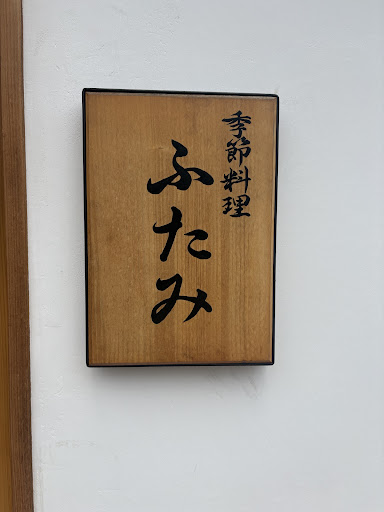 季節料理
ふたみ